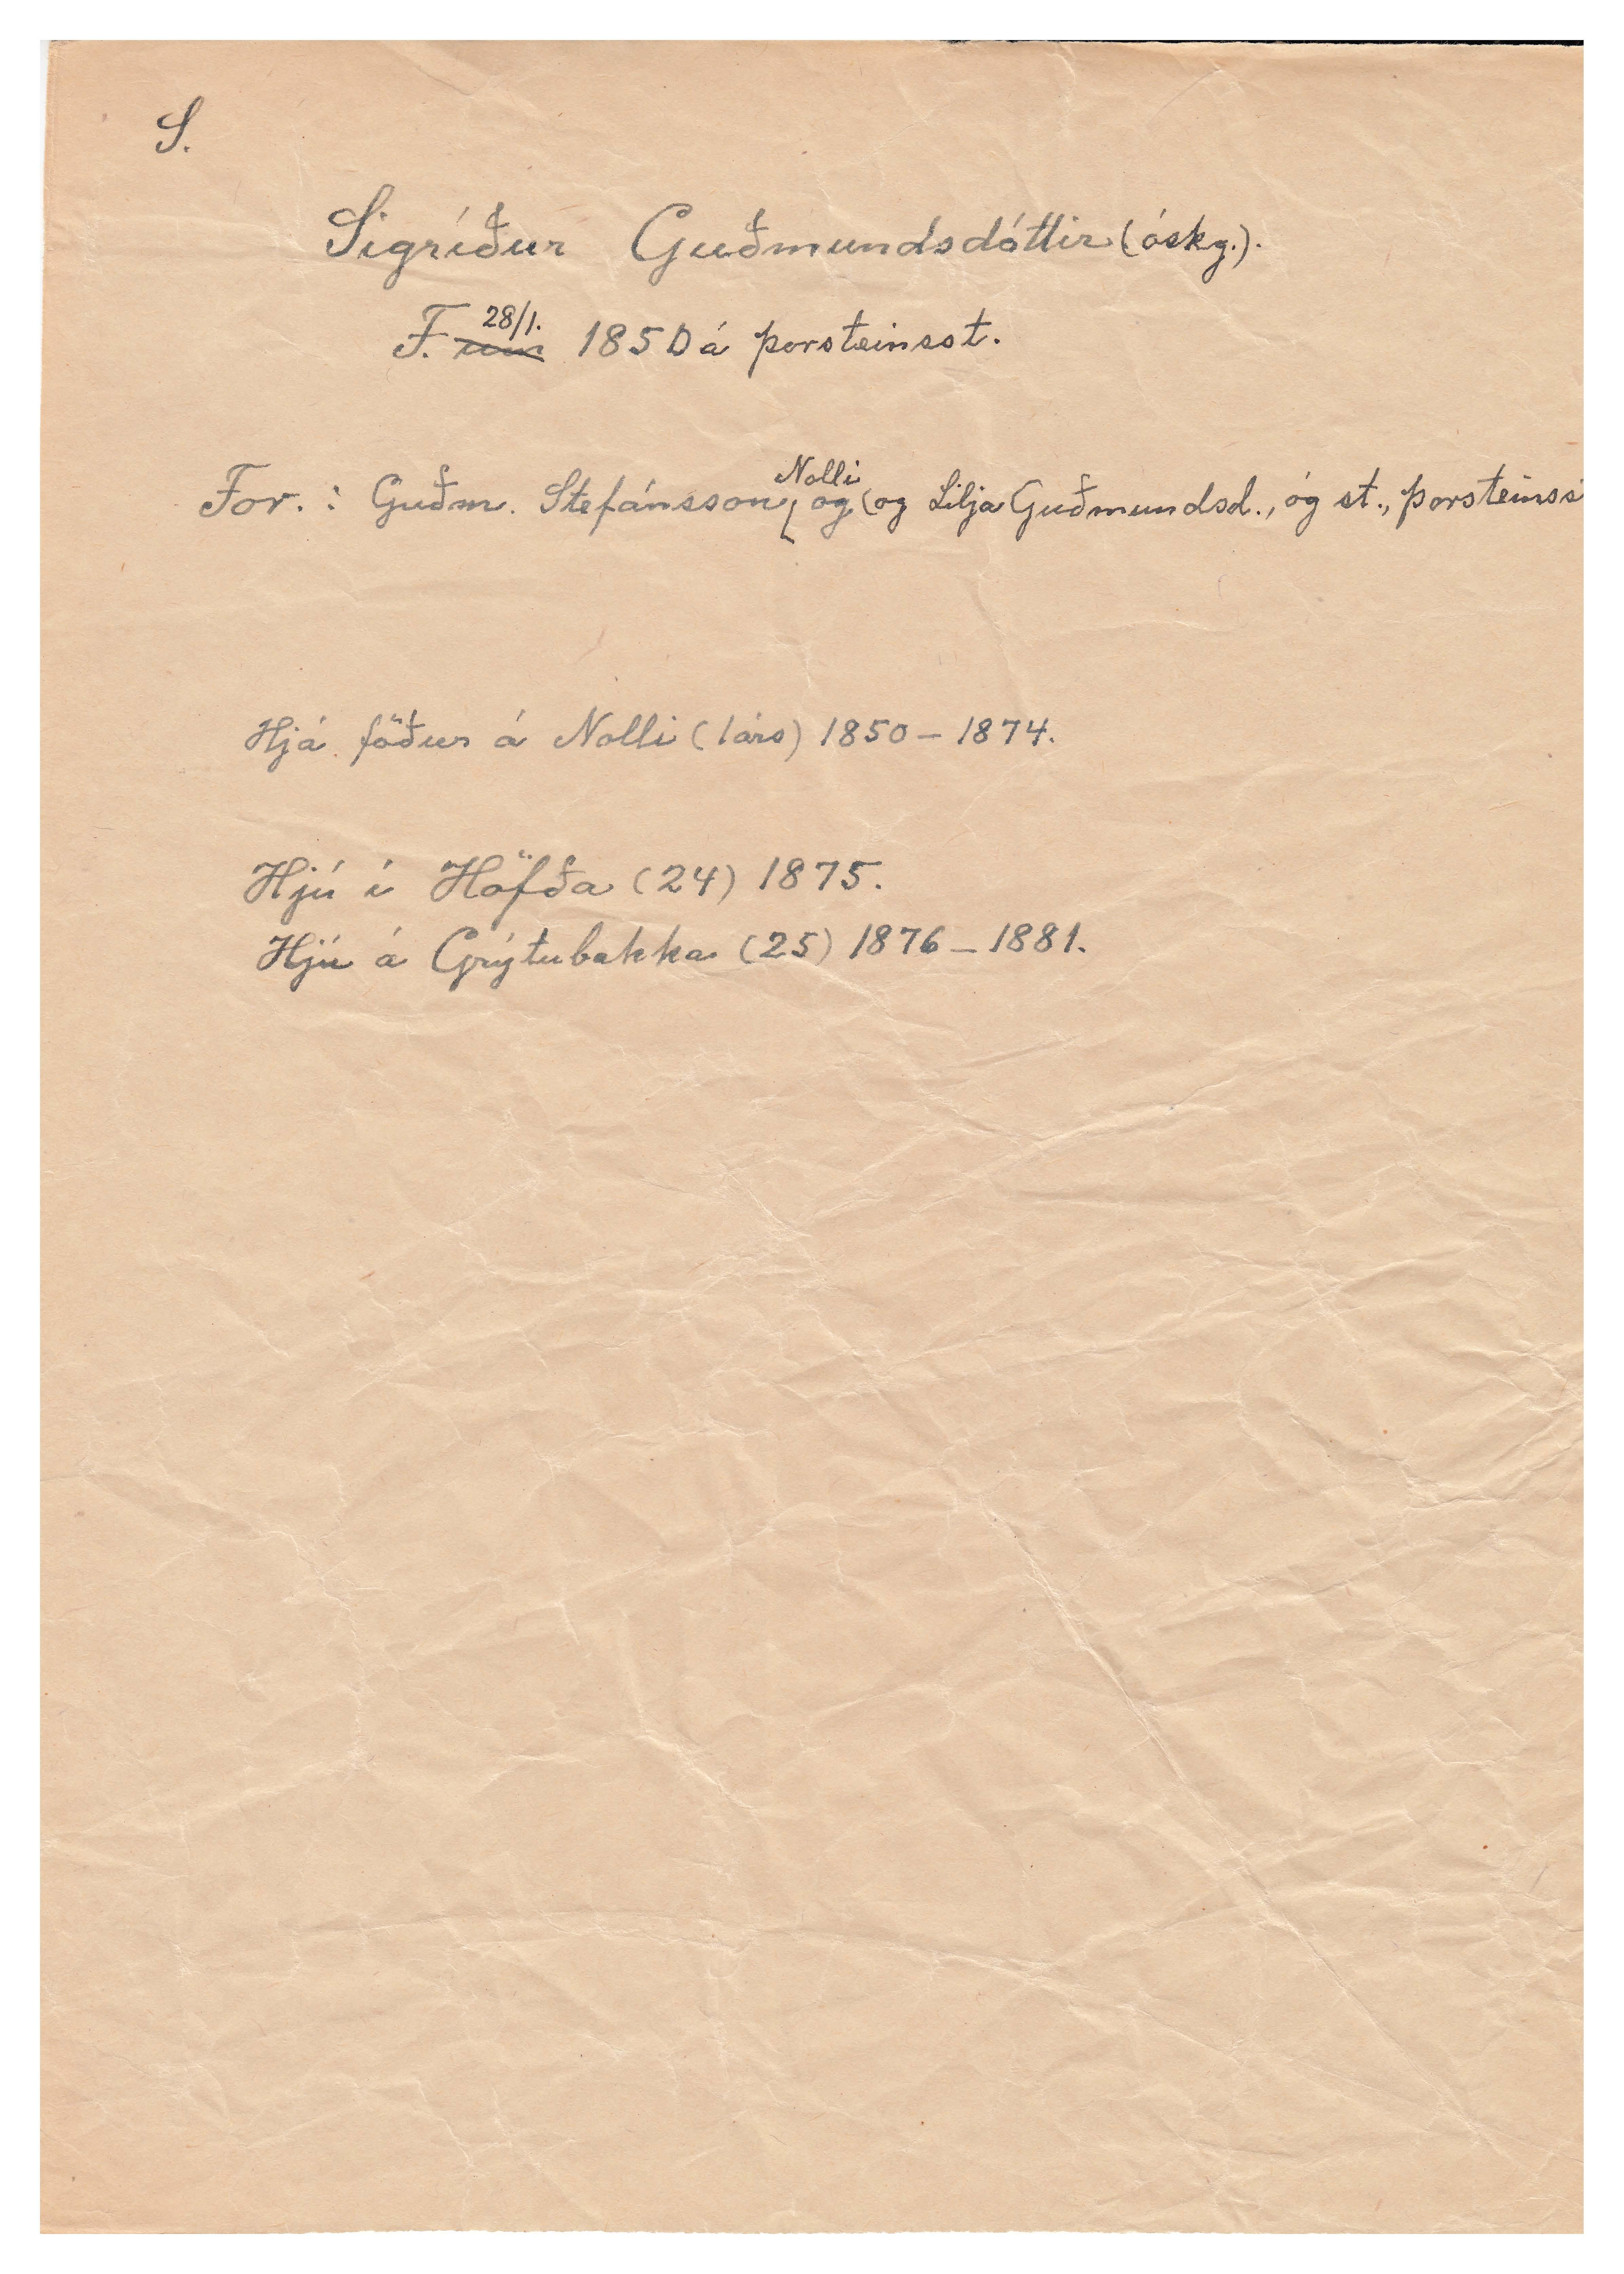 S.
Sigríður Guðmundsdóttir (óskg.).
F. 28/1. 1850 á Þorsteinsst.
For.: Guðm. Stefánsson, Nolli og (og Lilja Guðmundsd., óg st., Þorsteinss
Hjá föður á Nolli (1árs) 1850 - 1874.
Hjú í Höfða (24) 1875.
Hjú á Grýtubakka (25) 1876 - 1881.